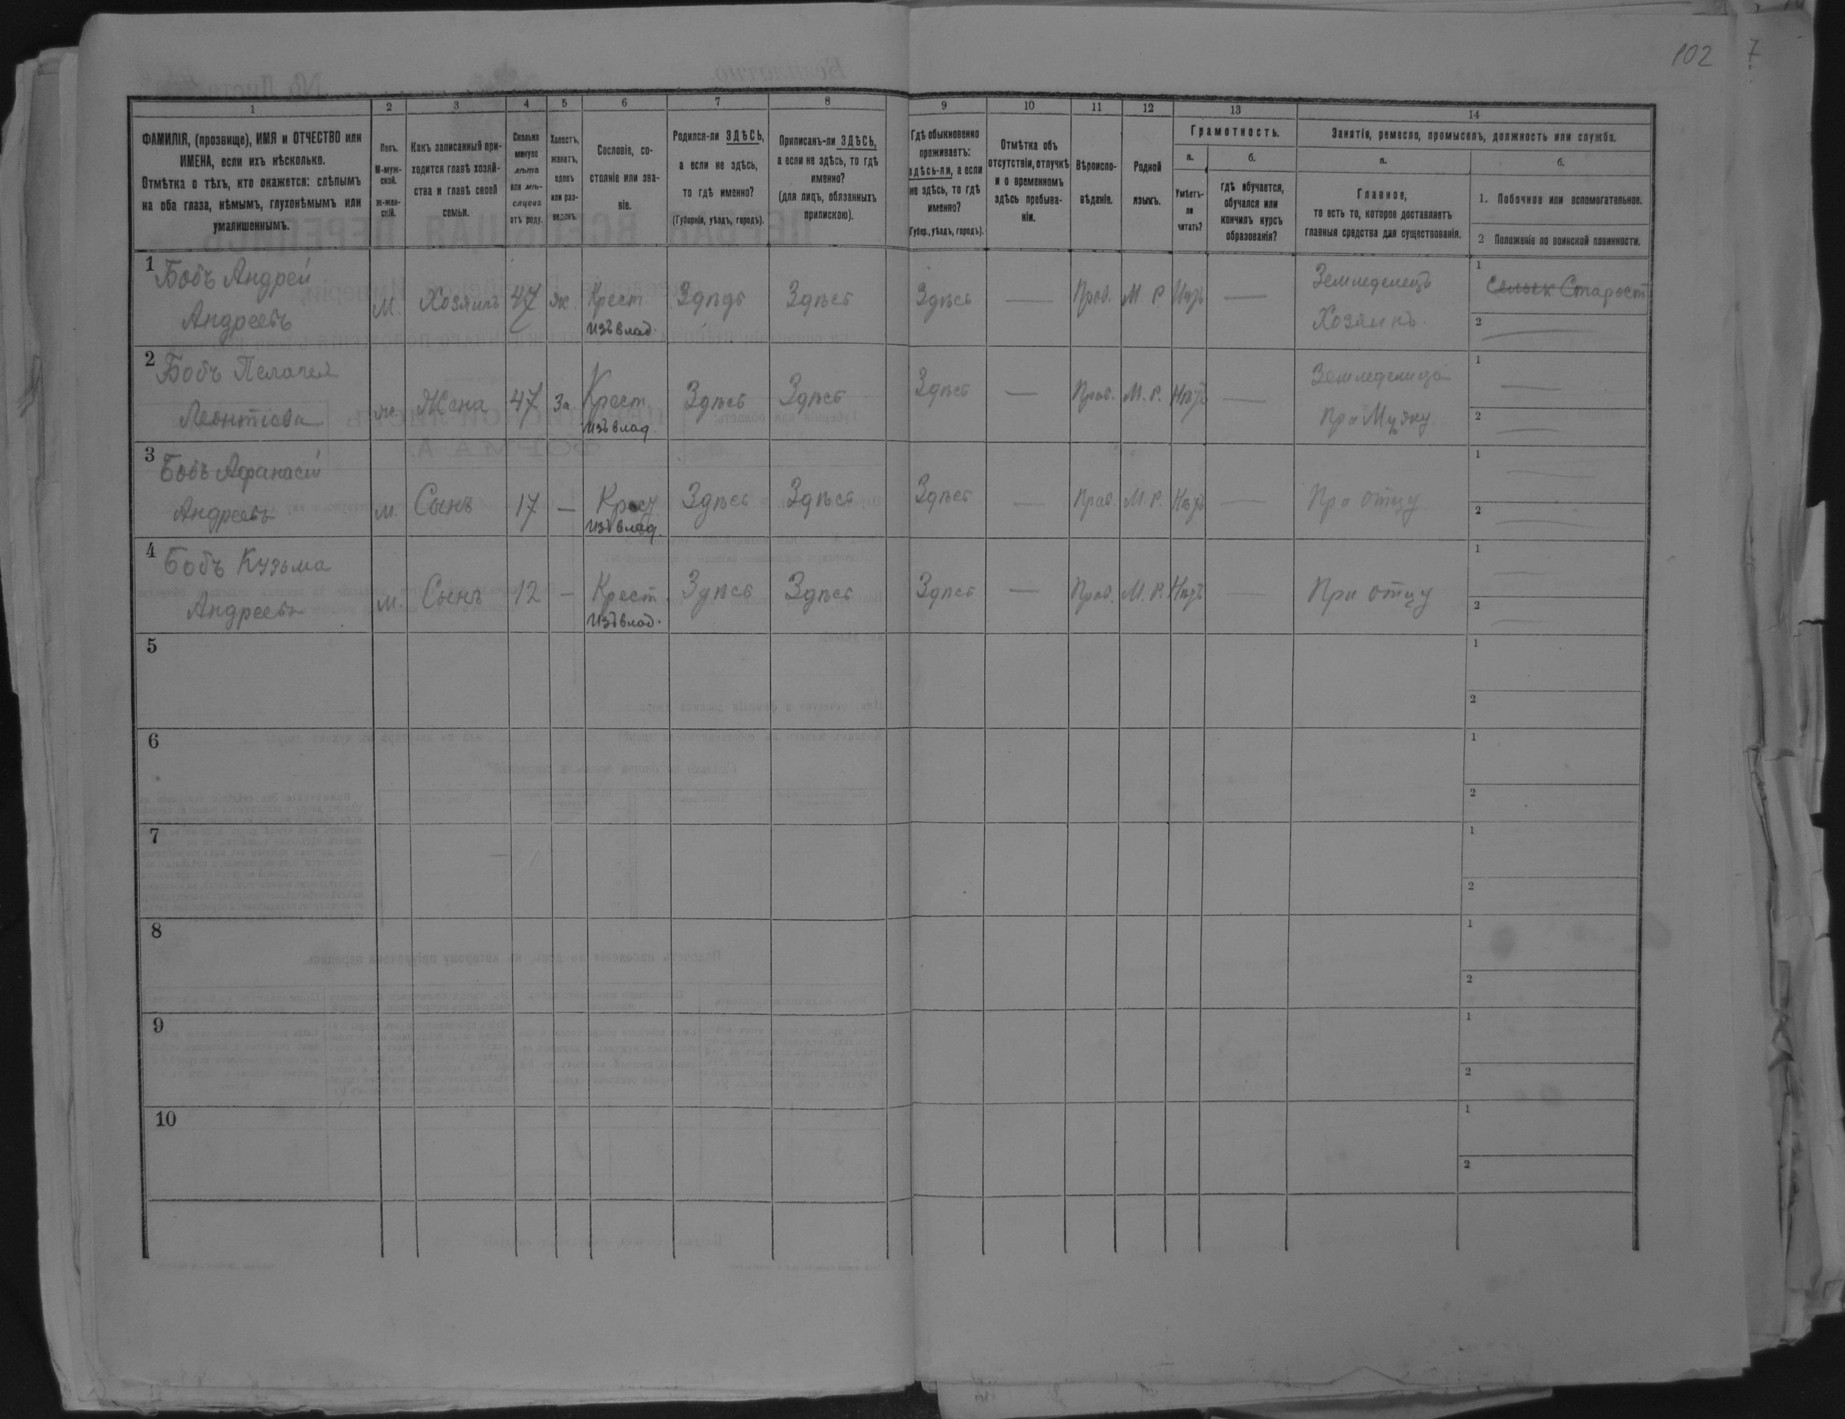 102 7
1 2 3 4 5 6 7 8 9 10 11 12 13 14
ФАМИЛІЯ, (прозвище), ИМЯ и ОТЧЕСТВО или
ИМЕНА, если ихъ нѣсколько.
Отмѣтка о тѣхъ, кто окажется: слѣпымъ
на оба глаза, нѣмымъ, глухонѣмымъ или
умалишеннымъ.
Полъ.
М-муж-
ской.
ж-жен-
скій.
Какъ записанный при-
ходится главѣ хозяй-
ства и главѣ своей
семьи.
Сколько
минуло
лѣтъ
или мѣ-
сяцевъ
отъ роду.
Холостъ,
женатъ,
вдовъ
или раз-
веденъ.
Сословіе, со-
стояніе или зва-
ніе.
Родился-ли ЗДѢСЬ,
а если не здѣсь,
то гдѣ именно?
(Губернія, уѣздъ, городъ).
Приписанъ-ли ЗДѢСЬ,
а если не здѣсь, то гдѣ
именно?
(для лицъ, обязанныхъ
припискою).
Гдѣ обыкновенно
проживаетъ:
здѣсь-ли, а если
не здѣсь, то гдѣ
именно?
(Губер., уѣздъ, городъ).
Отмѣтка объ
отсутствіи, отлучкѣ
и о временномъ
здѣсь пребыва-
ніи.
Вѣроиспо-
вѣданіе.
Родной
языкъ.
Грамотность.
а.
Умѣетъ-
ли
читать?
б.
гдѣ обучается,
обучался или
кончилъ курсъ
образованія?
Занятіе, ремесло, промыселъ, должность или служба.
а.
Главное,
то есть то, которое доставляетъ
главныя средства для существованія.
б.
1. Побочное или вспомогательное.
2 Положеніе по воинской повинности.
1 Бобъ Андрей
Андреевъ
М. Хозяинъ 47 ж. Крест
изъ влад.
Здѣсь Здѣсь Здѣсь — Прав. М. Р. Нѣтъ —
Земледелецъ
Хозяинъ.
1 Сельск Старост
2
2 Бобъ Пелагея
Леонтіева
ж Жена 47 За Крест
изъ влад.
Здѣсь Здѣсь Здѣсь — Прав. М. Р. Нѣтъ —
при Мужу
1
2
3 Бобъ Афанасій
Андреевъ
м. Сынъ 17 — Крест
изъ влад.
Здѣсь Здѣсь Здѣсь — Прав. М. Р. Нѣтъ —
При отцу
1
2
4 Бобъ Кузьма
Андреевъ
м. Сынъ 12 — Крест
изъ влад.
Здѣсь Здѣсь Здѣсь — Прав. М. Р. Нѣтъ —
При отцу
1
2
5
1
2
6
1
2
7
1
2
8
1
2
9
1
2
10
1
2